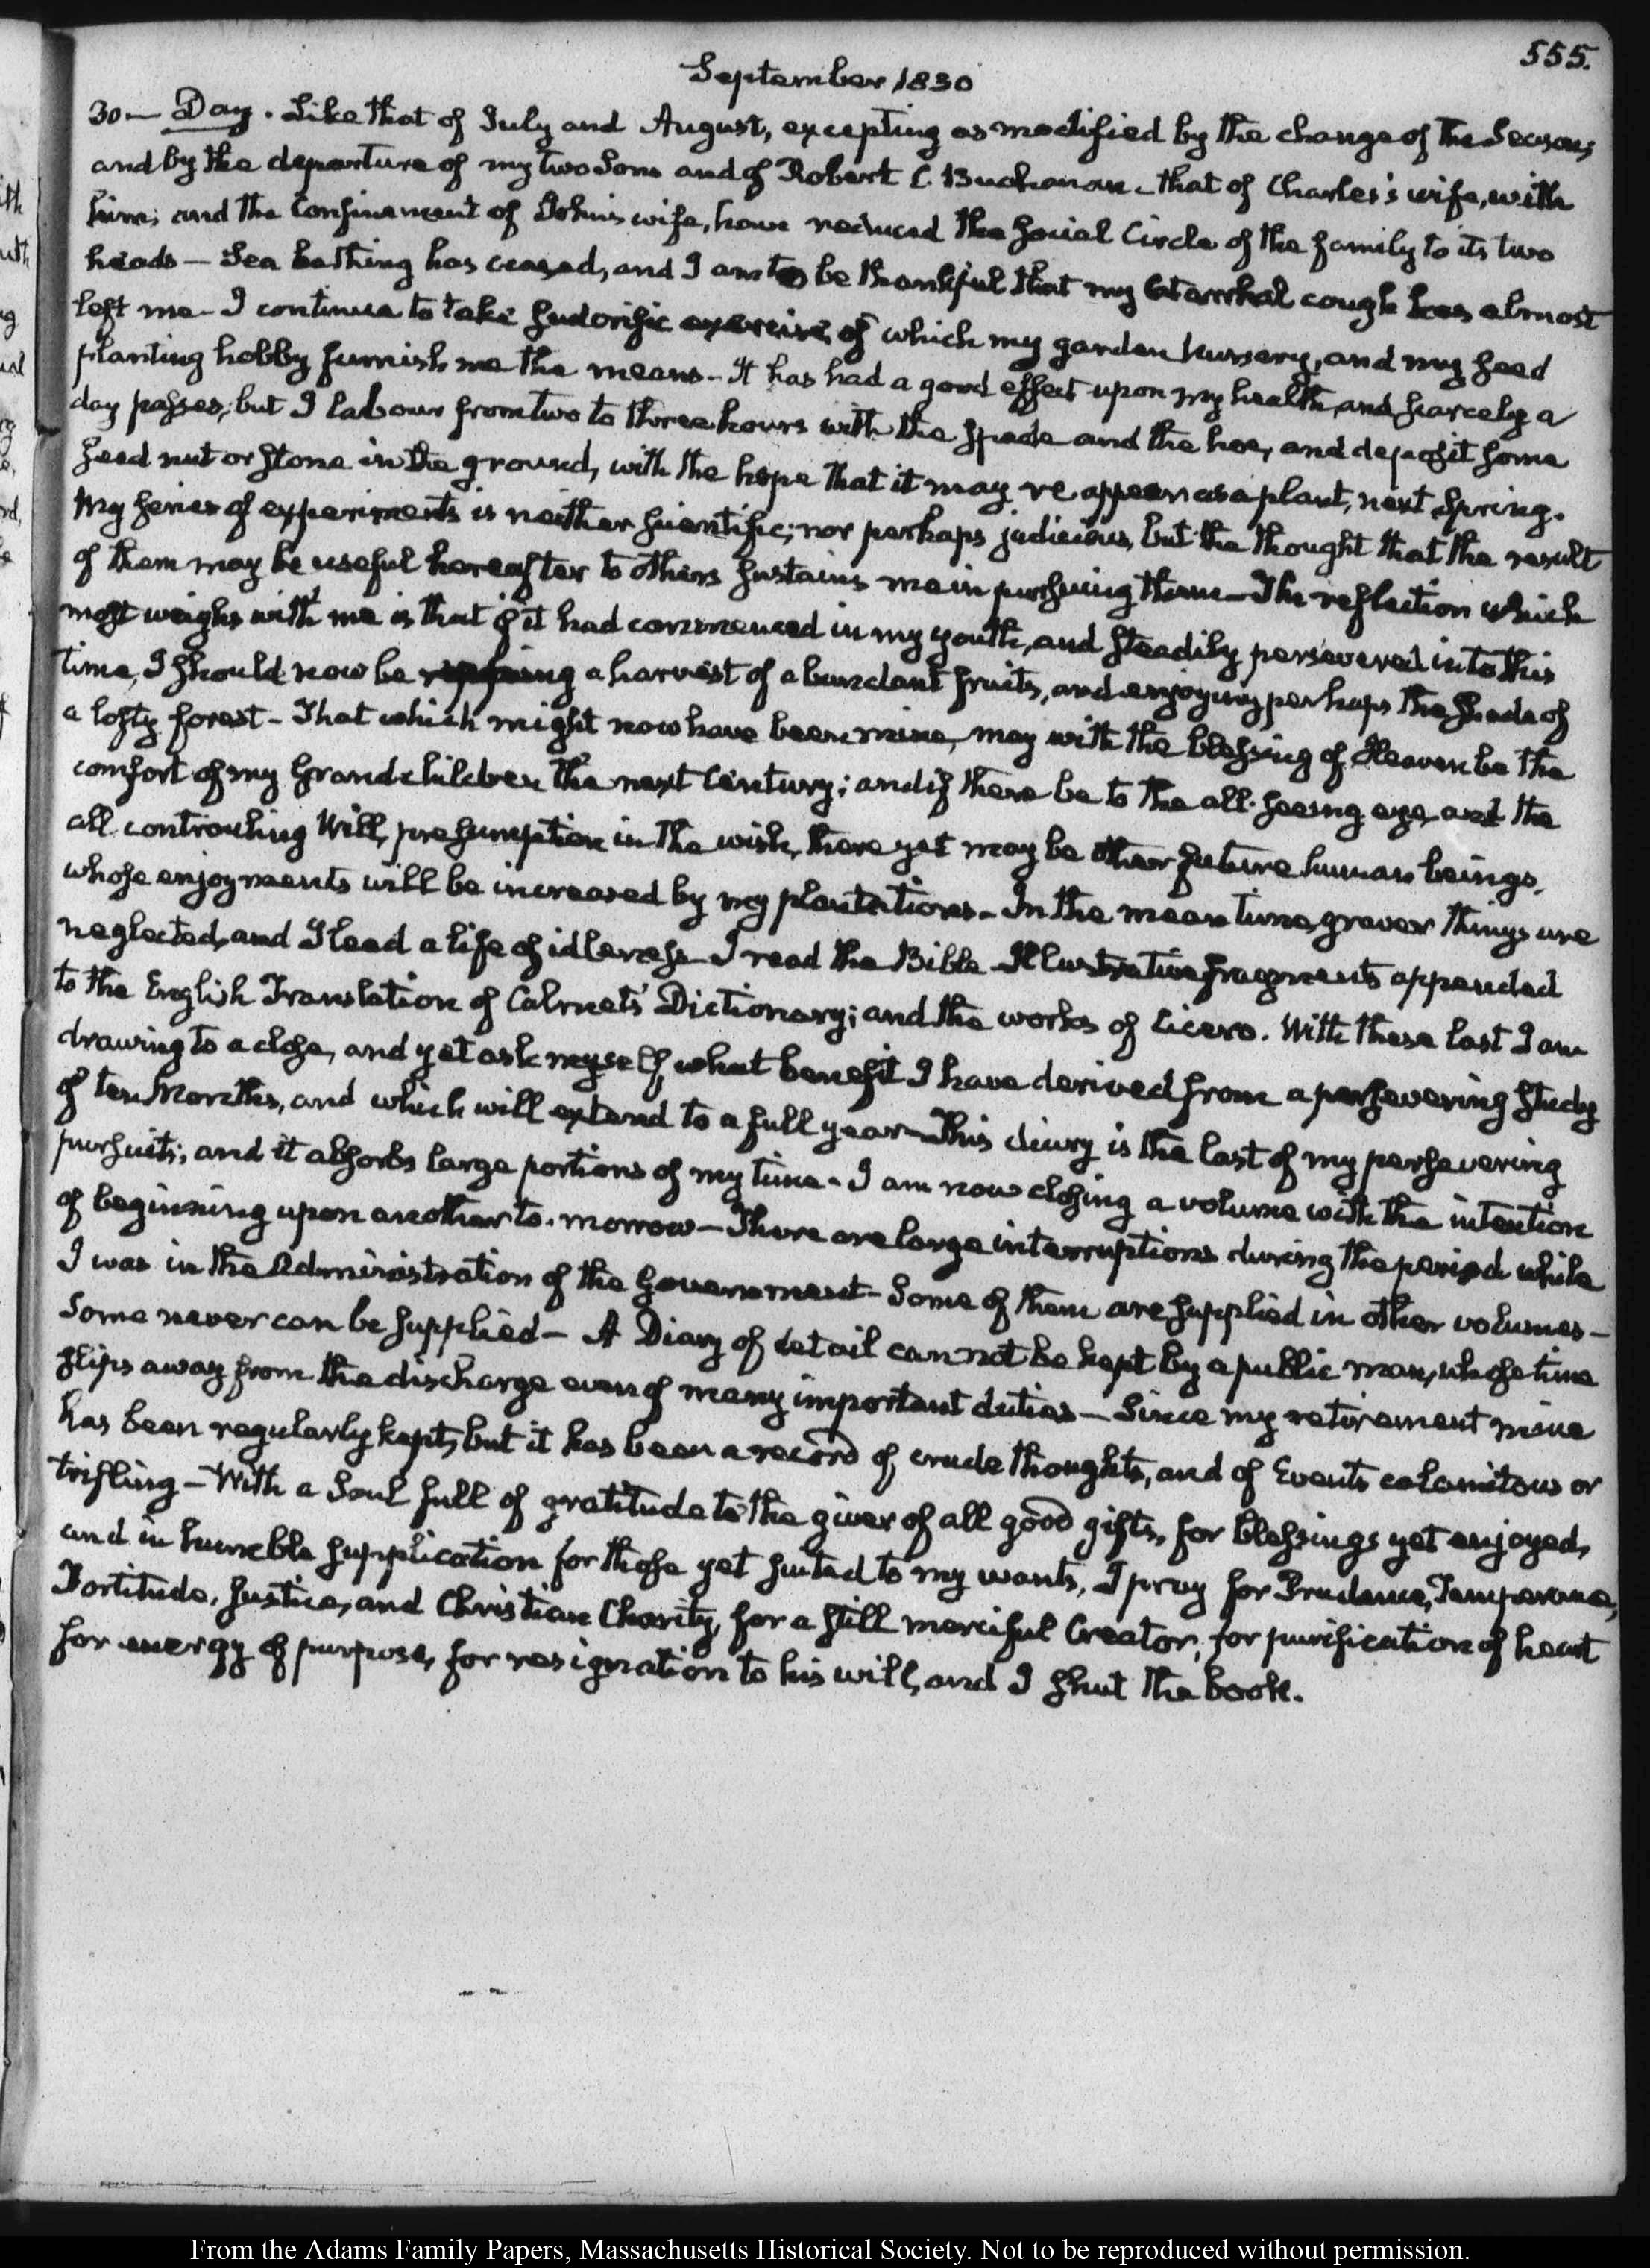 555.
September 1830
30.— Day. Like that of July and August, excepting as modified by the change of the Seasons
and by the departure of my two Sons and of Robert C. Buchanan — that of Charles's wife, with
him; and the Confinement of John's wife, have reduced the social Circle of the family to its two
heads — Sea bathing has ceased, and I am to be thankful that my Catarrhal cough has almost
left me — I continue to take sudorific exercise, of which my garden Nursery, and my seed
planting hobby furnish me the means — It has had a good effect upon my health, and scarcely a
day passes, but I labour from two to three hours with the spade and the hoe, and deposit some
seed nut or stone in the ground, with the hope that it may re appear as a plant, next Spring.
My series of experiments is neither scientific; nor perhaps judicious, but the thought that the result
of them may be useful hereafter to others sustains me in pursuing them — The reflection which
most weighs with me is that if it had commenced in my youth, and steadily persevered in to this
time, I should now be reaping a harvest of abundant fruits, and enjoying perhaps the shade of
a lofty forest — That which might now have been mine, may with the blessing of Heaven be the
comfort of my Grandchildren the next Century; and if there be to the all-seeing eye, and the
all controuling Will, presumption in the wish, there yet may be other future human beings,
whose enjoyments will be increased by my plantations — In the mean time, graver things are
neglected, and I lead a life of idleness — I read the Bible — Illustrative fragments appended
to the English Translation of Calmet's Dictionary; and the works of Cicero. With these last I am
drawing to a close, and yet ask myself, what benefit I have derived from a persevering study
of ten Months, and which will extend to a full year — This diary is the last of my persevering
pursuits; and it absorbs large portions of my time — I am now closing a volume with the intention
of beginning upon another to-morrow — There are large interruptions during the period while
I was in the Administration of the Government — Some of them are supplied in other volumes —
Some never can be supplied — A Diary of detail cannot be kept by a public man, whose time
slips away from the discharge even of many important duties — Since my retirement mine
has been regularly kept, but it has been a record of crude thoughts, and of Events calamitous or
trifling — With a Soul full of gratitude to the giver of all good gifts, for blessings yet enjoyed,
and in humble supplication for those yet suited to my wants, I pray for Prudence, Temperance,
Fortitude, Justice, and Christian Charity, for a still merciful Creator, for purification of heart
for energy of purpose, for resignation to his will, and I shut the book.
From the Adams Family Papers, Massachusetts Historical Society. Not to be reproduced without permission.